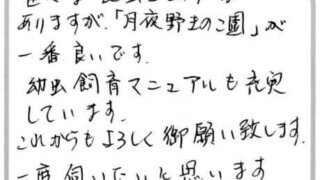 ありますが、「月夜野きのこ園」が
一番良いです。
幼虫飼育マニュアルも充実
しています。
これからもよろしく御願い致します。
一度伺いたいと思います